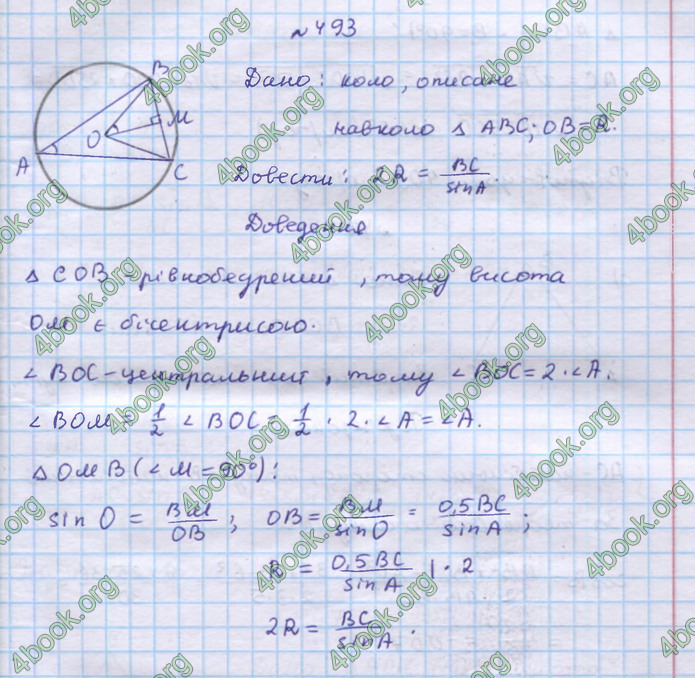 № 493
B
O
M
A
C
Дано: коло, описане
навколо △ ABC; OB=R.
Довести: 2R = BC/sinA.
Доведення
△ COB - рівнобедрений, тому висота
OM є бісектрисою.
∠ BOC - центральний, тому ∠ BOC = 2·∠A.
∠ BOM = 1/2 ∠ BOC = 1/2 · 2 · ∠A = ∠A.
△ OMB (∠M = 90°):
sin O = BM/OB; OB = BM/sinO = 0,5BC/sinA;
R = 0,5BC/sinA |·2
2R = BC/sinA.
4book.org